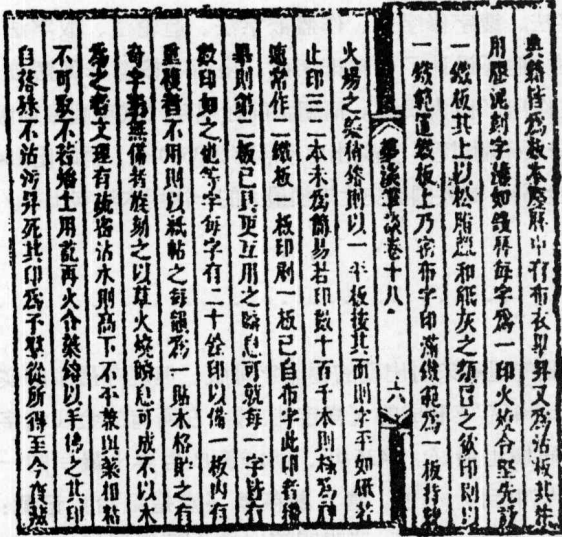 典籍皆爲板本慶曆中有布衣畢昇又爲活板其法
用膠泥刻字薄如錢脣每字爲一印火燒令堅先設
一鐵板其上以松脂臘和紙灰之類冒之欲印則以
一鐵範置鐵板上乃密布字印滿鐵範爲一板持就
夢溪筆談卷十八
六
火煬之藥稍鎔則以一平板按其面則字平如砥若
止印三二本未爲簡易若印數十百千本則極爲神
速常作二鐵板一板印刷一板已自布字此印者纔
畢則第二板已具更互用之瞬息可就每一字皆有
數印如之也等字每字有二十餘印以備一板內有
重複者不用則以紙帖之每韻爲一貼木格貯之有
奇字素無備者旋刻之以草火燒瞬息可成不以木
爲之者文理有疏密沾水則高下不平兼與藥相粘
不可取不若燔土用訖再火令藥鎔以手拂之其印
自落殊不沾污昇死其印爲予羣從所得至今寶藏